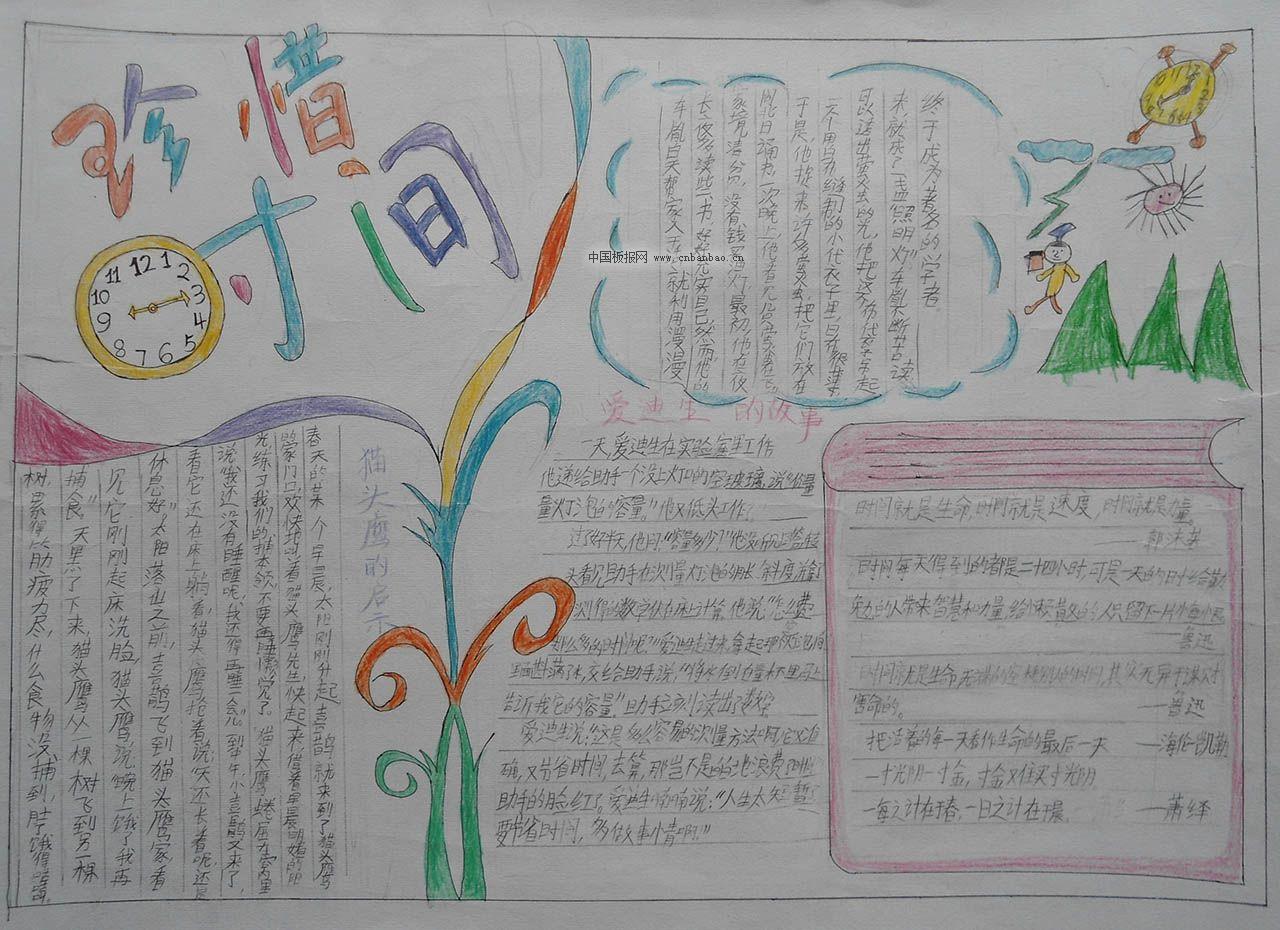 珍惜时间
11 12 1
10 2
9 3
8 4
7 6 5
中国板报网
www.cnbanbao.cn
车胤白天帮家人干活,就利用漫漫
长夜多读些书,好好充实自己。然而,他的
家境清贫,没有钱买灯油。最初,他在夜
一天用白布缝制的小代衣子里,
于是,他抓来许多萤火虫,把它们放在
可以透出萤火虫的光,他把这个布代子吊起
来,就成了“盏”照明灯”车胤不断苦读
终于成为著名的学者。
猫头鹰的启示
春天的某一个早晨,太阳刚刚升起,喜鹊就来到了猫头鹰
的家门口,欢快地叫着猫头鹰先生,快起来,借着早晨明媚的阳
光练习我们的捕本领,不要再睡懒觉了。”猫头鹰蜷居在窝里
说“我还没有睡醒呢,我还得再睡一会儿”到中午小喜鹊又来了,
看它还在床上躺着,猫头鹰抢着说“天还长着呢,还是
休息好”太阳落山之前,喜鹊飞到猫头鹰家,看
见它刚刚起床洗脸,猫头鹰说“晚上饿了我再
捕食”天黑了下来,猫头鹰从一棵树飞到另一棵
树,累得筋疲力尽,什么食物没捕到,肚饿得
爱迪生的故事
一天,爱迪生在实验室里工作
他递给助手一个没上灯口的空玻璃,说“你量
量灯泡的容量。”他又低头工作了
过了好半天,他问:“容量多少?”他没听见回答,转
头看见助手在测量灯泡的周长、斜度,并拿了
测得的数字伏在床上计算。他说:“怎么费
那么多的时间呢?”爱迪生走过来,拿起那个空灯泡,向
里面斟满了水,交给助手说,“将水倒在量杯里,马上
告诉我它的容量。”助手立刻读出了数字
爱迪生说:“这是多么容易的测量方法啊,它又准
确,又节省时间,去算,那岂不是白白地浪费时间
助手的脸红了。爱迪生喃喃说:“人生太短暂了
要节省时间,多做事情啊!”
时间就是生命,时间就是速度,时间就是力量。
——郭沫若
时间每天得到的都是二十四小时,可是一天的时间给勤
勉的人带来智慧和力量,给
——鲁迅
时间就是生命,无端的空耗别人的时间,其实无异于谋财
害命的。 ——鲁迅
把活着的每一天看作生命的最后一天 ——海伦·凯勒
一寸光阴一寸金,寸金难买寸光阴。
一年之计在于春,一日之计在于晨。 ——萧绎